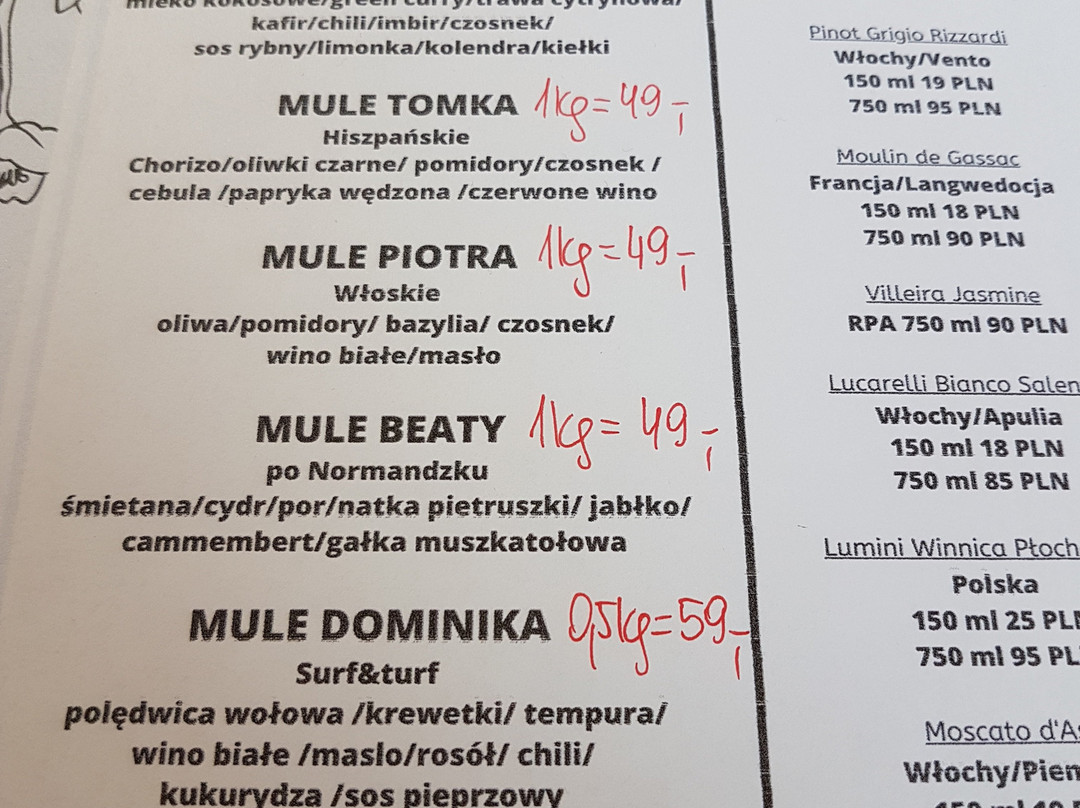 mleko kokosowe/green curry/trawa cytrynowa/
kafir/chili/imbir/czosnek/
sos rybny/limonka/kolendra/kiełki
MULE TOMKA 1kg=49,-
Hiszpańskie
Chorizo/oliwki czarne/ pomidory/czosnek /
cebula /papryka wędzona /czerwone wino
MULE PIOTRA 1kg=49,-
Włoskie
oliwa/pomidory/ bazylia/ czosnek/
wino białe/masło
MULE BEATY 1kg=49,-
po Normandzku
śmietana/cydr/por/natka pietruszki/ jabłko/
cammembert/gałka muszkatołowa
MULE DOMINIKA 0,5kg=59,-
Surf&turf
polędwica wołowa /krewetki/ tempura/
wino białe /maslo/rosół/ chili/
kukurydza /sos pieprzowy
Pinot Grigio Rizzardi
Włochy/Vento
150 ml 19 PLN
750 ml 95 PLN
Moulin de Gassac
Francja/Langwedocja
150 ml 18 PLN
750 ml 90 PLN
Villeira Jasmine
RPA 750 ml 90 PLN
Lucarelli Bianco Salen
Włochy/Apulia
150 ml 18 PLN
750 ml 85 PLN
Lumini Winnica Płoch
Polska
150 ml 25 PL
750 ml 95 PL
Moscato d'As
Włochy/Piem